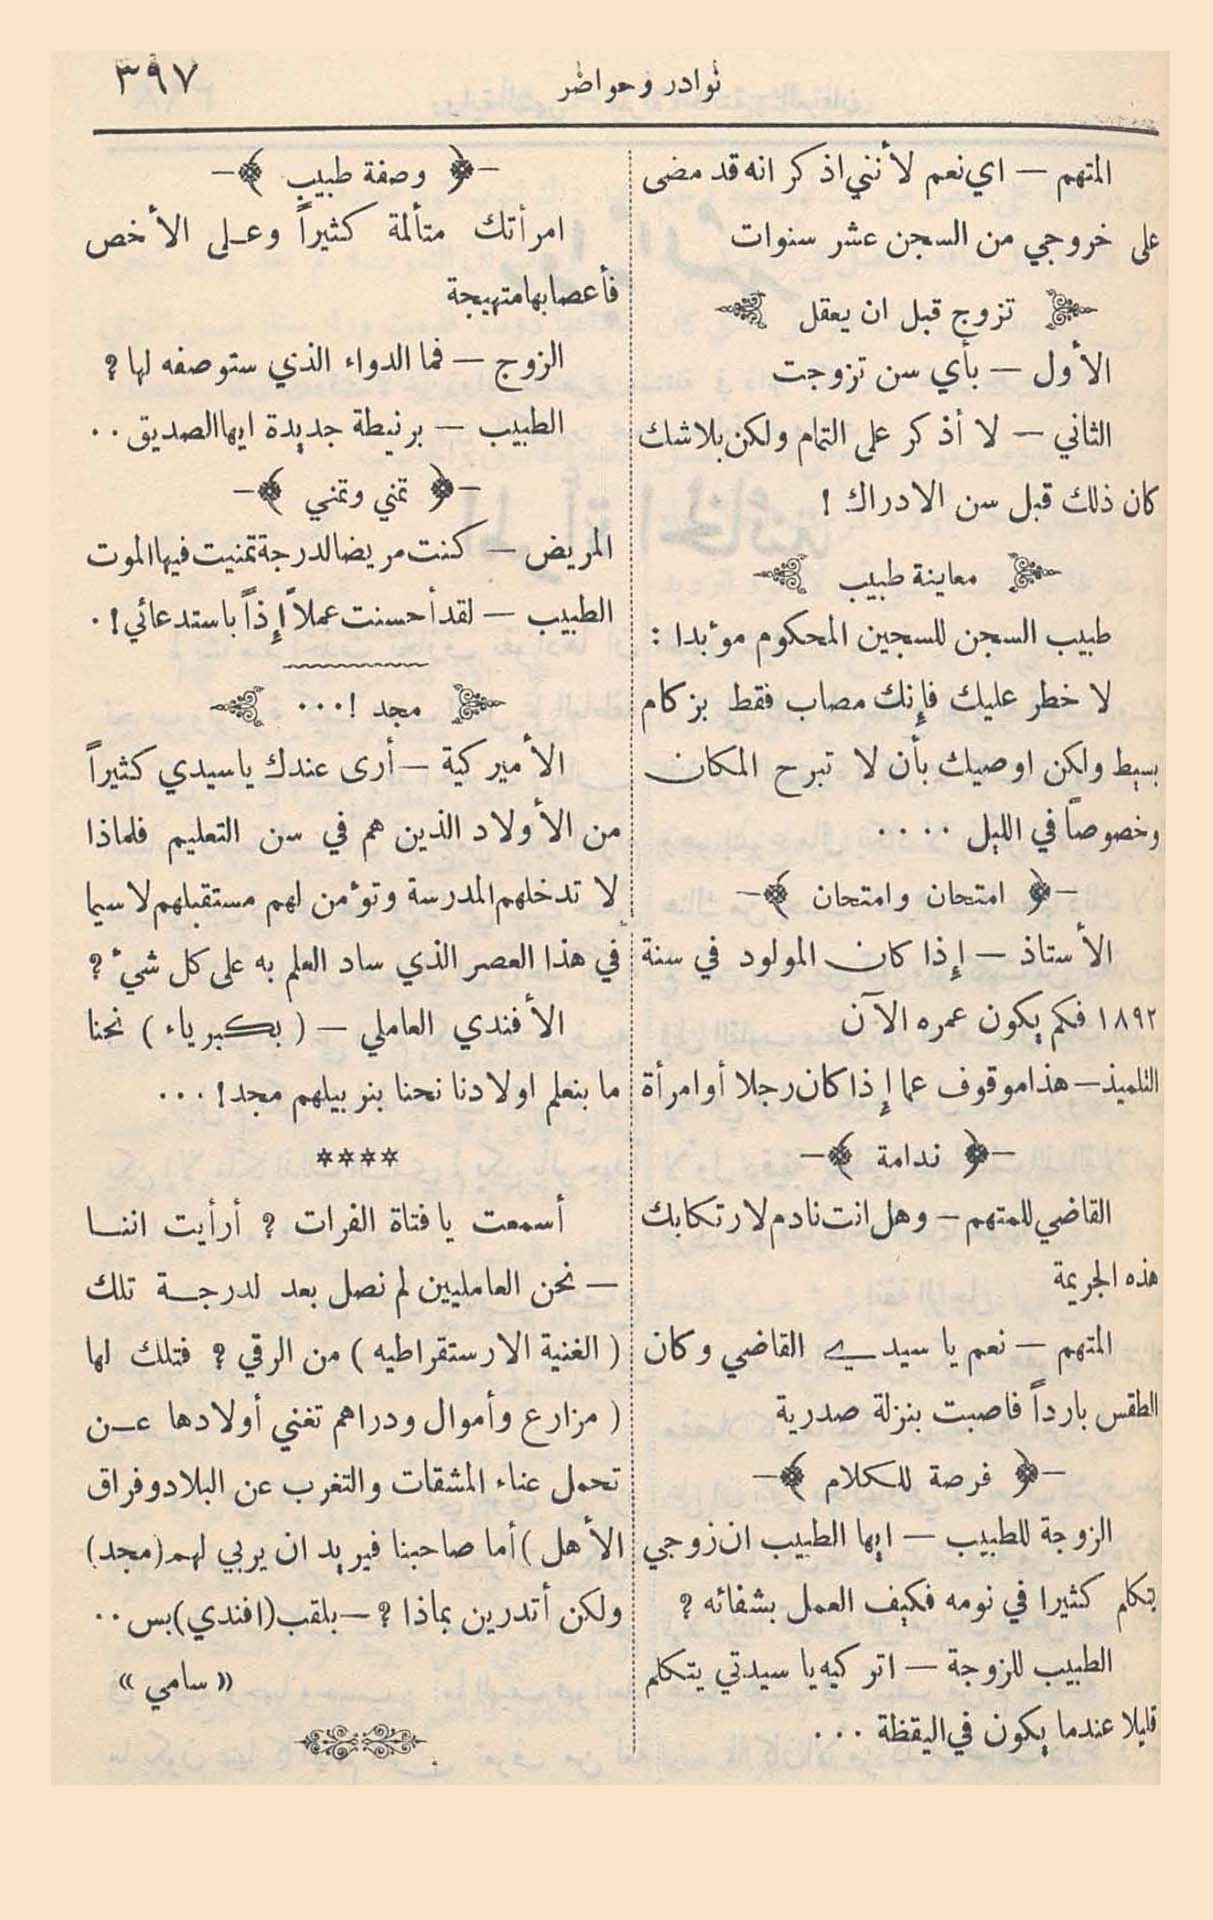 نوادر وحواضر
٣٩٧
المتهم — اي نعم لأنني اذكر انه قد مضى
على خروجي من السجن عشر سنوات
تزوج قبل ان يعقل
الأول — بأي سن تزوجت
الثاني — لا أذكر على التمام ولكن بلاشك
كان ذلك قبل سن الادراك !
معاينة طبيب
طبيب السجن للسجين المحكوم موٴبدا :
لا خطر عليك فإنك مصاب فقط بزكام
بسيط ولكن اوصيك بأن لا تبرح المكان
وخصوصاً في الليل ....
﴿ امتحان وامتحان ﴾
الأستاذ — إذا كان المولود في سنة
١٨٩٢ فكم يكون عمره الآن
التلميذ — هذا موقوف عما إذا كان رجلا أو امرأة
﴿ ندامة ﴾
القاضي للمتهم — وهل انت نادم لارتكابك
هذه الجريمة
المتهم — نعم يا سيدي القاضي وكان
الطقس بارداً فاصبت بنزلة صدرية
﴿ فرصة للكلام ﴾
الزوجة للطبيب — ايها الطبيب ان زوجي
يتكلم كثيرا في نومه فكيف العمل بشفائه ؟
الطبيب للزوجة — اتركيه يا سيدتي يتكلم
قليلا عندما يكون في اليقظة ...
﴿ وصفة طبيب ﴾
امرأتك متألمة كثيراً وعلى الأخص
فأعصابها متهيجة
الزوج — فما الدواء الذي ستوصفه لها ؟
الطبيب — برنيطة جديدة ايها الصديق ..
﴿ تمني وتمني ﴾
المريض — كنت مريضا لدرجة تمنيت فيها الموت
الطبيب — لقد أحسنت عملاً إذاً باستدعائي ! .
مجد ! ...
الأميركية — أرى عندك ياسيدي كثيراً
من الأولاد الذين هم في سن التعليم فلماذا
لا تدخلهم المدرسة وتوٴمن لهم مستقبلهم لاسيما
في هذا العصر الذي ساد العلم به على كل شيء ؟
الأفندي العاملي — ( بكبرياء ) نحنا
ما بنعلم اولادنا نحنا بنربيلهم مجد ! ...
****
أسمعت يا فتاة الفرات ؟ أرأيت اننا
— نحن العامليين لم نصل بعد لدرجة تلك
( الغنية الارستقراطيه ) من الرقي ؟ فتلك لها
( مزارع وأموال ودراهم تغني أولادها عن
تحمل عناء المشقات والتغرب عن البلاد وفراق
الأهل ) أما صاحبنا فيريد ان يربي لهم (مجد)
ولكن أتدرين بماذا ؟ — بلقب (افندي) بس ..
« سامي »